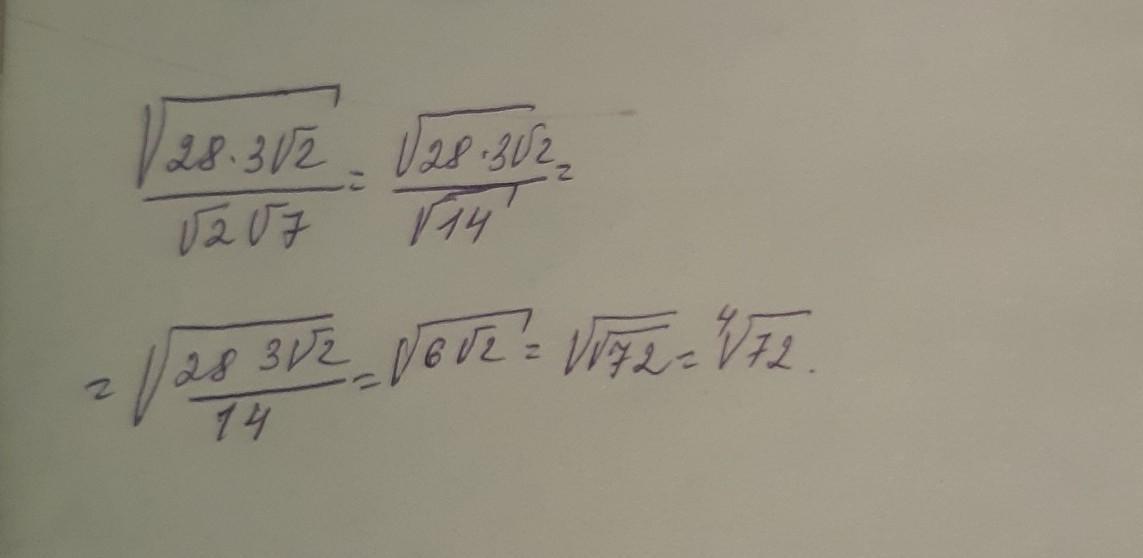 √(28·3√2)/(√2√7) = √(28·3√2)/√14 =
= √((28 3√2)/14) = √(6√2) = √√72 = ⁴√72.